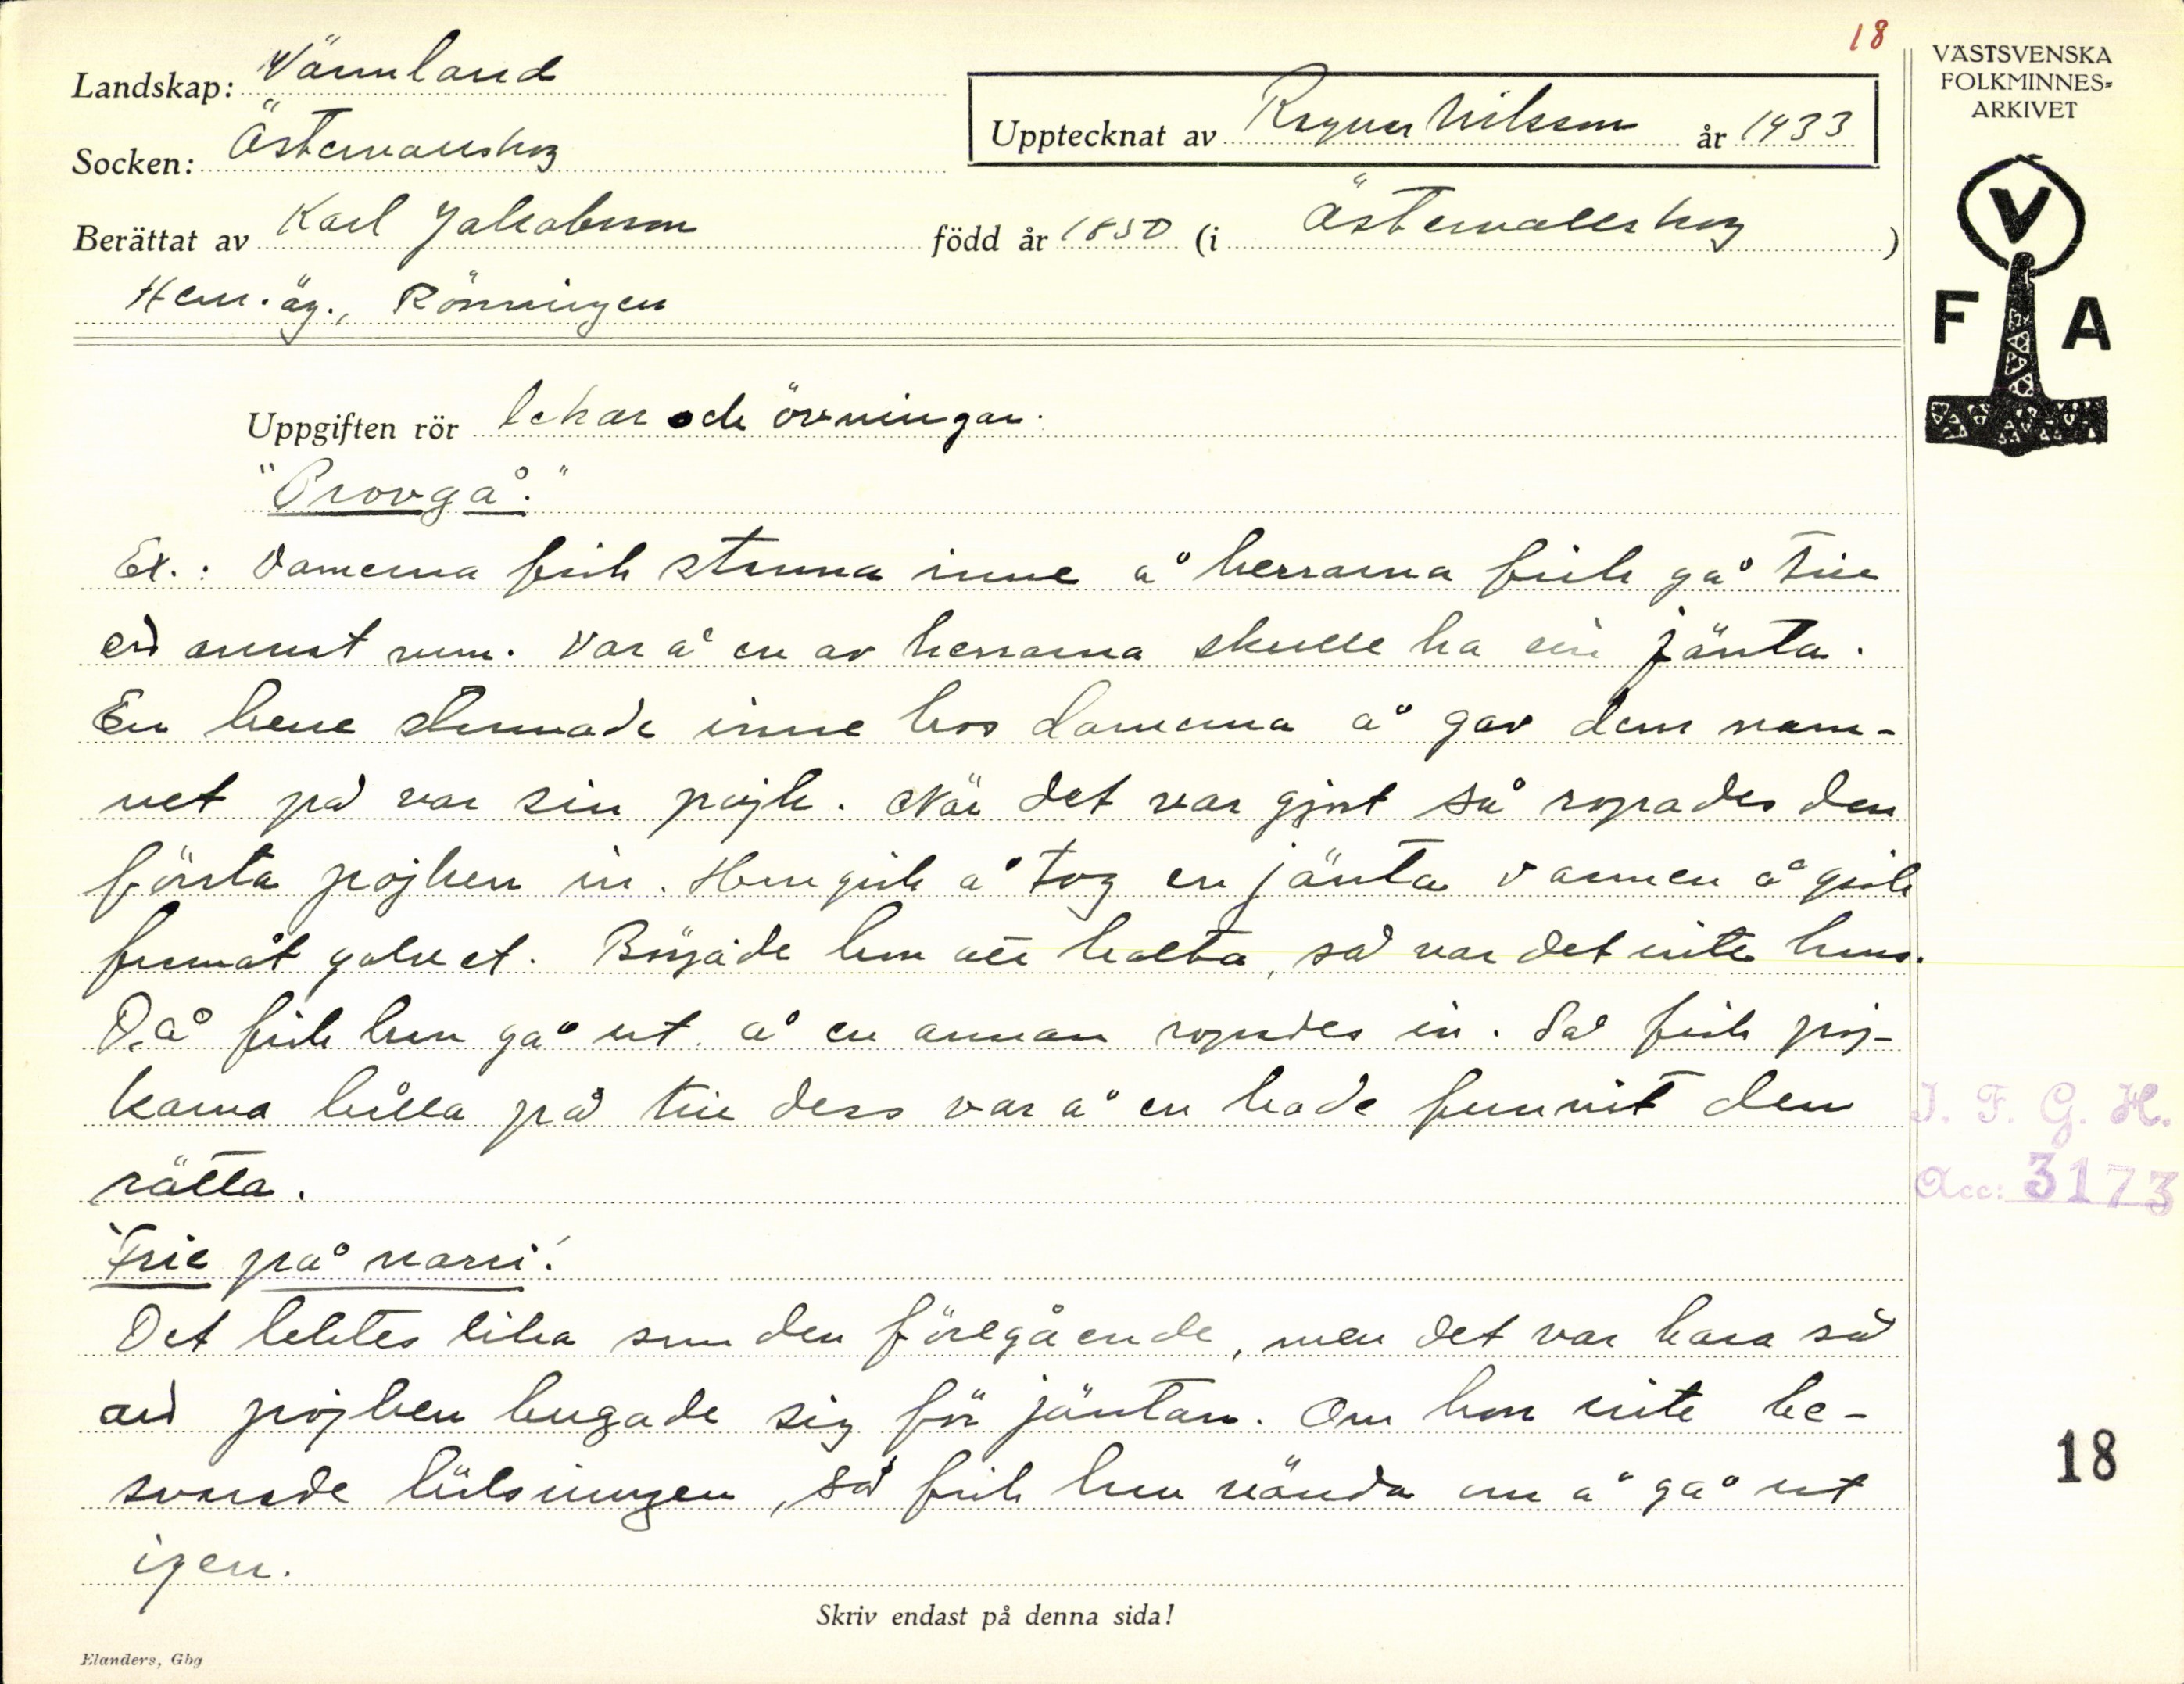 18
Landskap: Värmland
Socken: Östervallskog
Upptecknat av Ragnar Nilsson år 1933
Berättat av Karl Jakobsson född år 1850 (i Östervallskog)
Hem.äg., Rönningen
VÄSTSVENSKA
FOLKMINNES-
ARKIVET
V
F A
Uppgiften rör lekar och övningar.
"Provgå."
Ex.: Damerna fick stanna inne å herrarna fick gå till
ett annat rum. Var å en av herrarna skulle ha sin jänta.
En herre stannade inne hos damerna å gav dem nam-
net på var sin pojk. När det var gjort så ropades den
första pojken in. Han gick å tog en jänta i armen å gick
framåt golvet. Började hon att halta, så var det inte hans.
Då fick han gå ut å en annan ropades in. Så fick poj-
karna hålla på till dess var å en hade funnit den
rätta.
"Frie på narri."
Det lektes lika som den föregående, men det var bara så
att pojken bugade sig för jäntan. Om hon inte be-
svarade hälsningen, så fick han vända om å gå ut
igen.
I. F. G. H.
Acc: 3173
18
Skriv endast på denna sida!
Elanders, Gbg